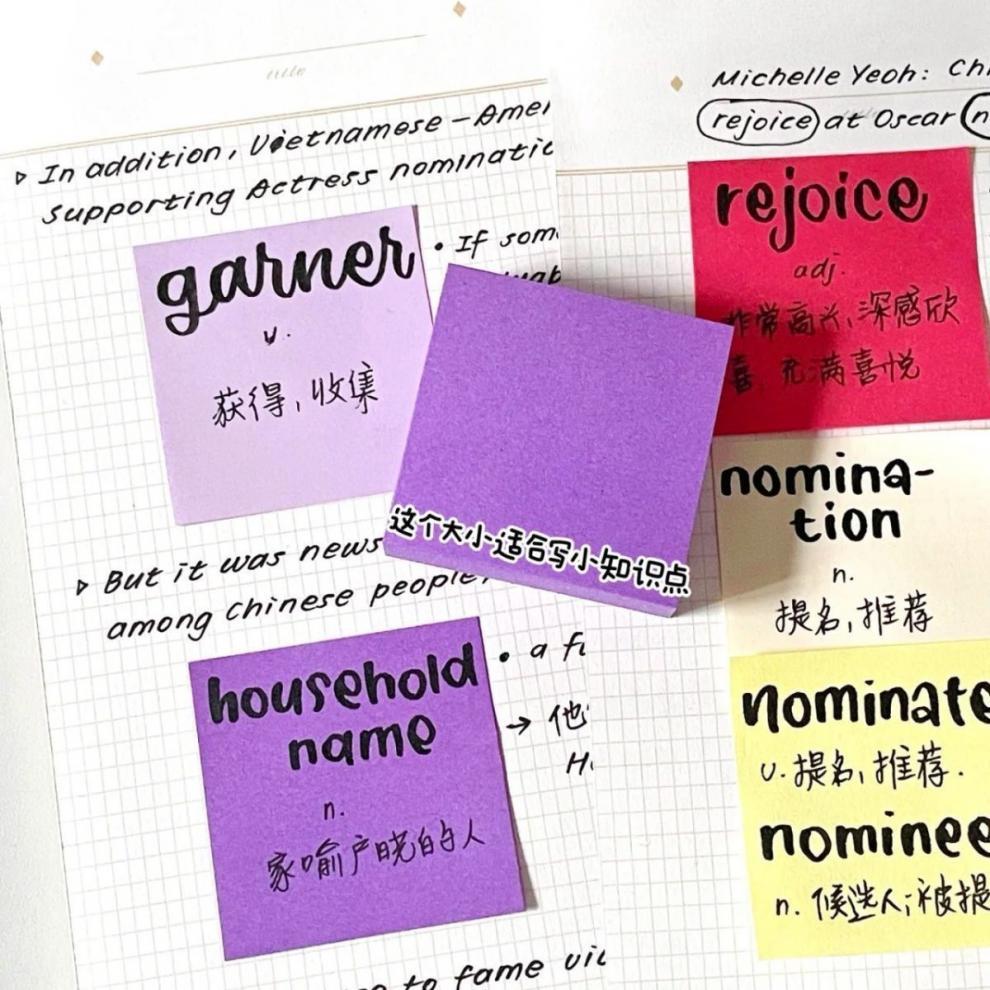 title
▷ In addition, Vietnamese-Amer
Supporting Actress nominatio
garner
v.
获得, 收集
• If som
▷ But it was news
among Chinese people,
household
name
n.
家喻户晓的人
• a fi
→ 他
H
to fame vi
这个大小适合写小知识点
Michelle Yeoh: Chi
rejoice at Oscar n
rejoice
adj.
非常高兴, 深感欣
喜, 充满喜悦
nomina-
tion
n.
提名, 推荐
nominate
v. 提名, 推荐.
nominee
n. 候选人; 被提